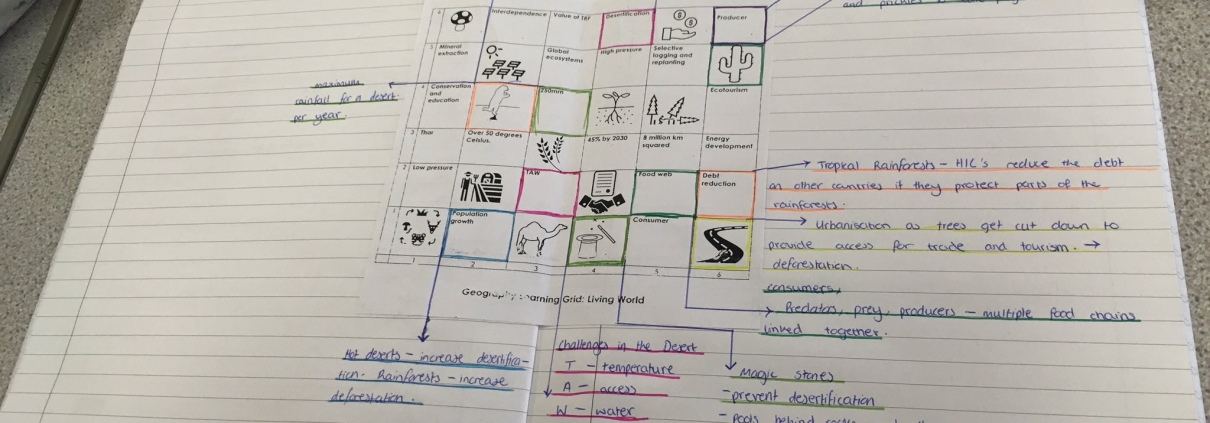 and
6
Interdependence
Value of TRF
Desertification
Producer
5 Mineral extraction
Global ecosystems
High pressure
Selective logging and replanting
maximum
rainfall for a desert
per year.
4 Conservation and education
250mm
Ecotourism
3 Thar
Over 50 degrees Celsius.
45% by 2030
8 million km squared
Energy development
2 Low pressure
TAW
Food web
Debt reduction
Tropical Rainforests - HIC's reduce the debt
on other countries if they protect parts of the
rainforests.
1
Population growth
Consumer
Urbanisation as trees get cut down to
provide access for trade and tourism. →
deforestation.
1 2 3 4 5 6
Geography Learning Grid: Living World
consumers,
Predators, prey, producers - multiple food chains
linked together.
Hot deserts - increase desertifica-
tion. Rainforests - increase
deforestation.
Challenges in the Desert
T - temperature
A - access
W - water
Magic Stones
- prevent desertification
- pools behind